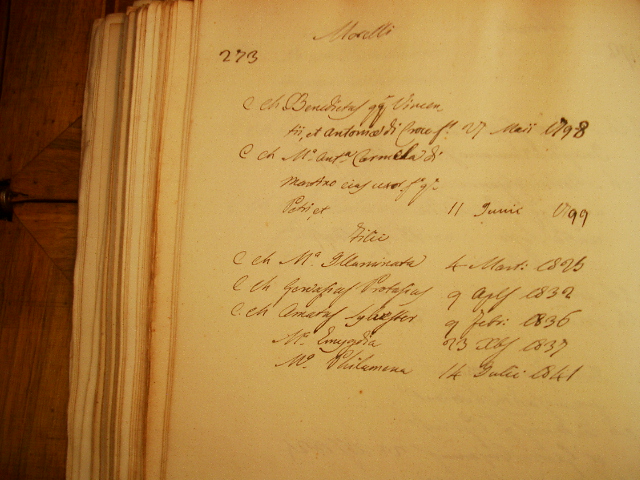 Morelli
273
C Ch Benedictus qm Vincen,
tii, et Antoniæ di Croce f. 27 Maii 1798
C Ch Ma Anta Carmela di
Martino eius uxor fa qm
Petri, et 11 Junii 1799
Filii
C Ch Ma Illuminata 4 Marti 1825
C Ch Gervasius Protasius 9 Aplis 1832
C Ch Amatus Sylvester 9 Febri 1836
Ma Emygdia 23 Xbris 1837
Ma Philumena 14 Julii 1841